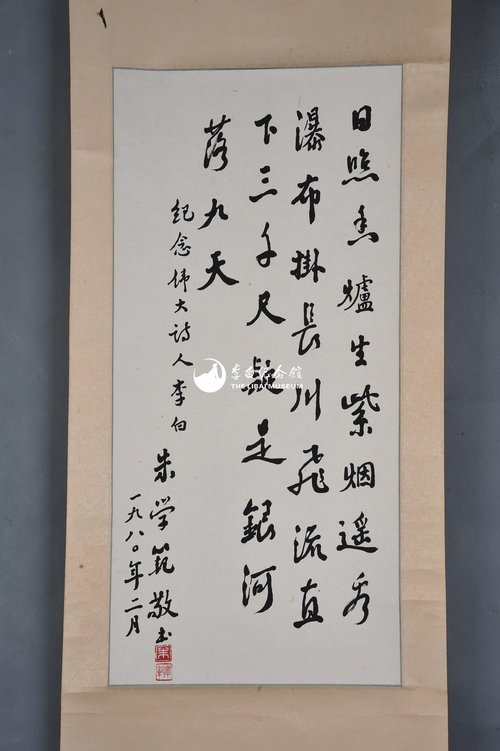 日照香爐生紫烟遥看
瀑布掛長川飛流直
下三千尺疑是銀河
落九天
纪念伟大詩人李白
朱学範敬书
一九八〇年二月
李白纪念館
THE LIBAI MUSEUM